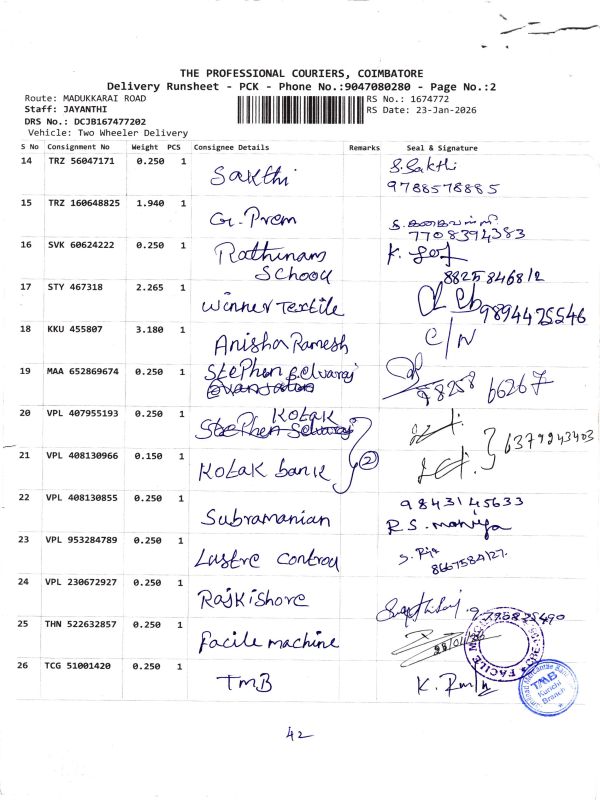 THE PROFESSIONAL COURIERS, COIMBATORE
Delivery Runsheet - PCK - Phone No.:9047080280 - Page No.:2
Route: MADUKKARAI ROAD
RS No.: 1674772
Staff: JAYANTHI
RS Date: 23-Jan-2026
DRS No.: DCJB167477202
Vehicle: Two Wheeler Delivery
S No Consignment No Weight PCS Consignee Details Remarks Seal & Signature
14 TRZ 56047171 0.250 1 Sakthi S.Sakthi
9788578885
15 TRZ 160648825 1.940 1 G.Prem
7708394383
16 SVK 60624222 0.250 1 Rathinam K.
School 8825846812
17 STY 467318 2.265 1 Winner Textile 9894425546
18 KKU 455807 3.180 1 Anisha Ramesh C/N
19 MAA 652869674 0.250 1 Stephen Selvaraj
98258 66267
20 VPL 407955193 0.250 1 Kotak
Stephen Selvaraj 6379243403
21 VPL 408130966 0.150 1 Kotak bank 2
22 VPL 408130855 0.250 1 Subramanian 9843145633
R.S.
23 VPL 953284789 0.250 1 Lustre Control S. Riya
8667584127.
24 VPL 230672927 0.250 1 Rajkishore
25 THN 522632857 0.250 1 Facile machine
FACILE
26 TCG 51001420 0.250 1 TMB K.
TMB
Kurichi
Branch
42